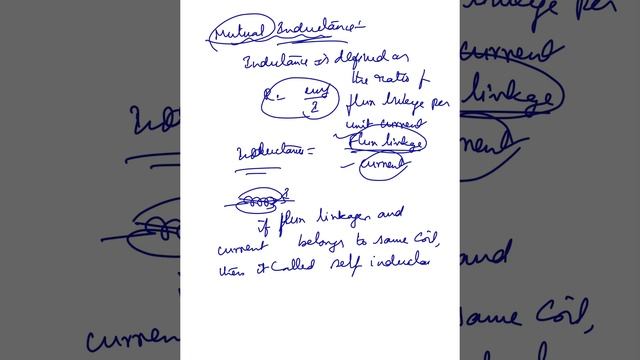 Mutual Inductance:-
Inductance is defined as
the ratio of
R = emf/I
flux linkage per
unit current
Inductance = flux linkage
current
if flux linkages and
current belongs to same coil,
then it called self inductan